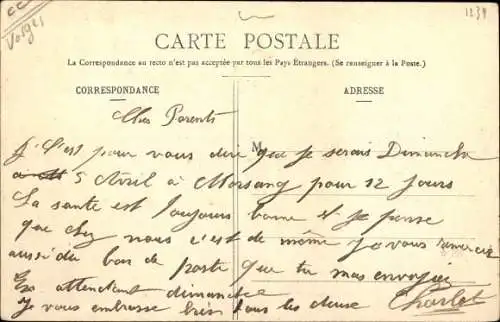 CC
Vosges
1239
CARTE POSTALE
La Correspondance au recto n'est pas acceptée par tous les Pays Étrangers. (Se renseigner à la Poste.)
CORRESPONDANCE
ADRESSE
Mes Parents
M
J' C'est pour vous dire que je serais Dimanche
5 Avril à Morsang pour 12 Jours
La santé est toujours bonne et je pense
que chez nous c'est de même je vous remercie
aussi du bon de poste que tu mas envoyer
En attendant dimanche
Je vous embrasse bien tous les deuse Charlot